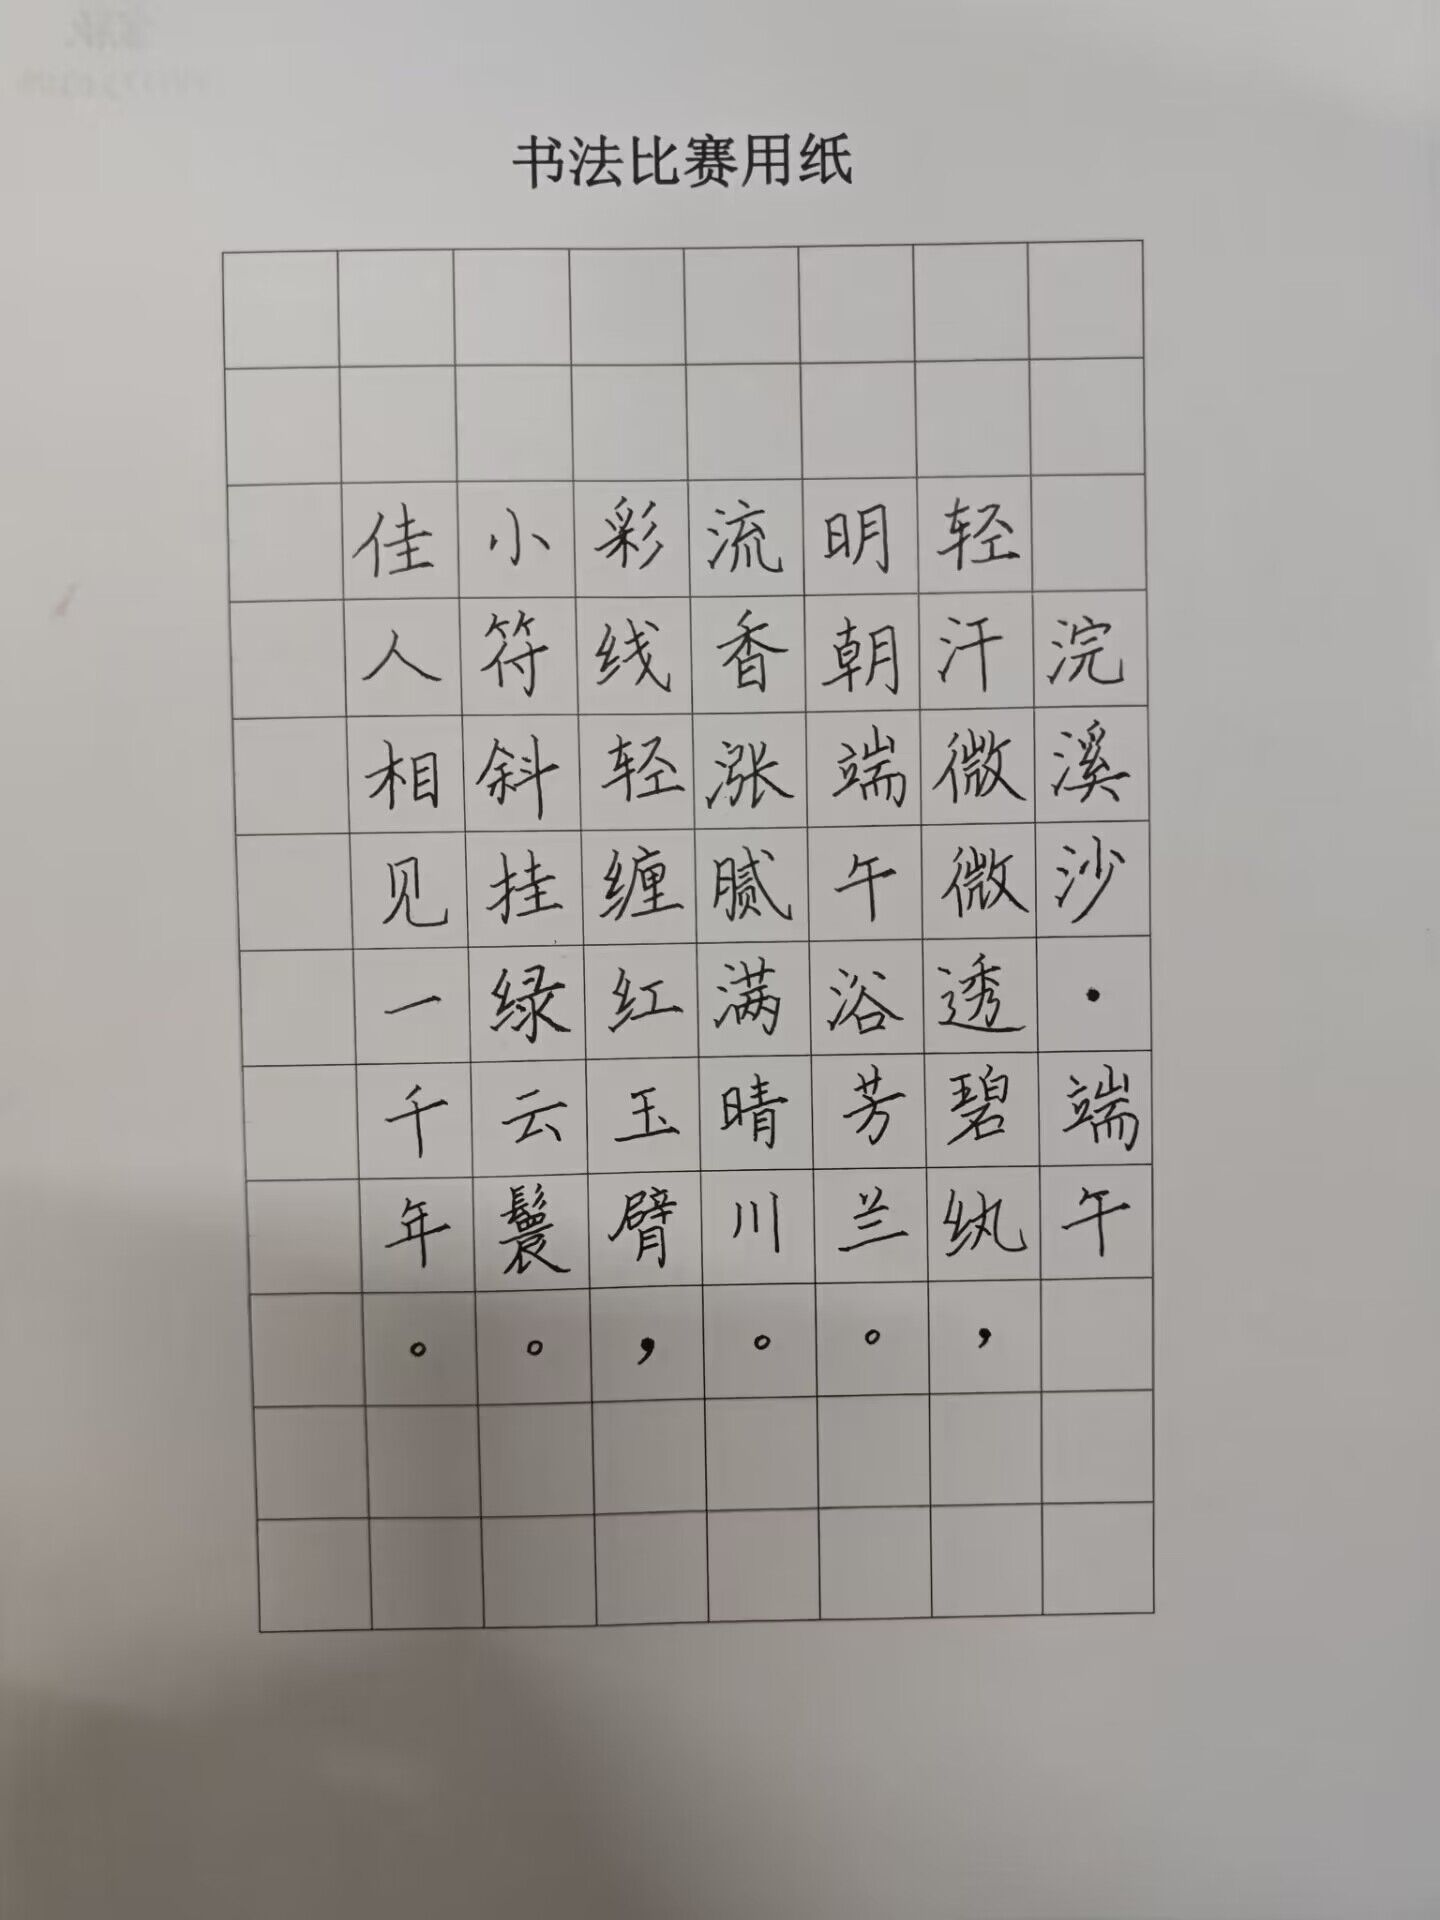 书法比赛用纸
浣溪沙·端午
轻汗微微透碧纨，
明朝端午浴芳兰。
流香涨腻满晴川。
彩线轻缠红玉臂，
小符斜挂绿云鬟。
佳人相见一千年。